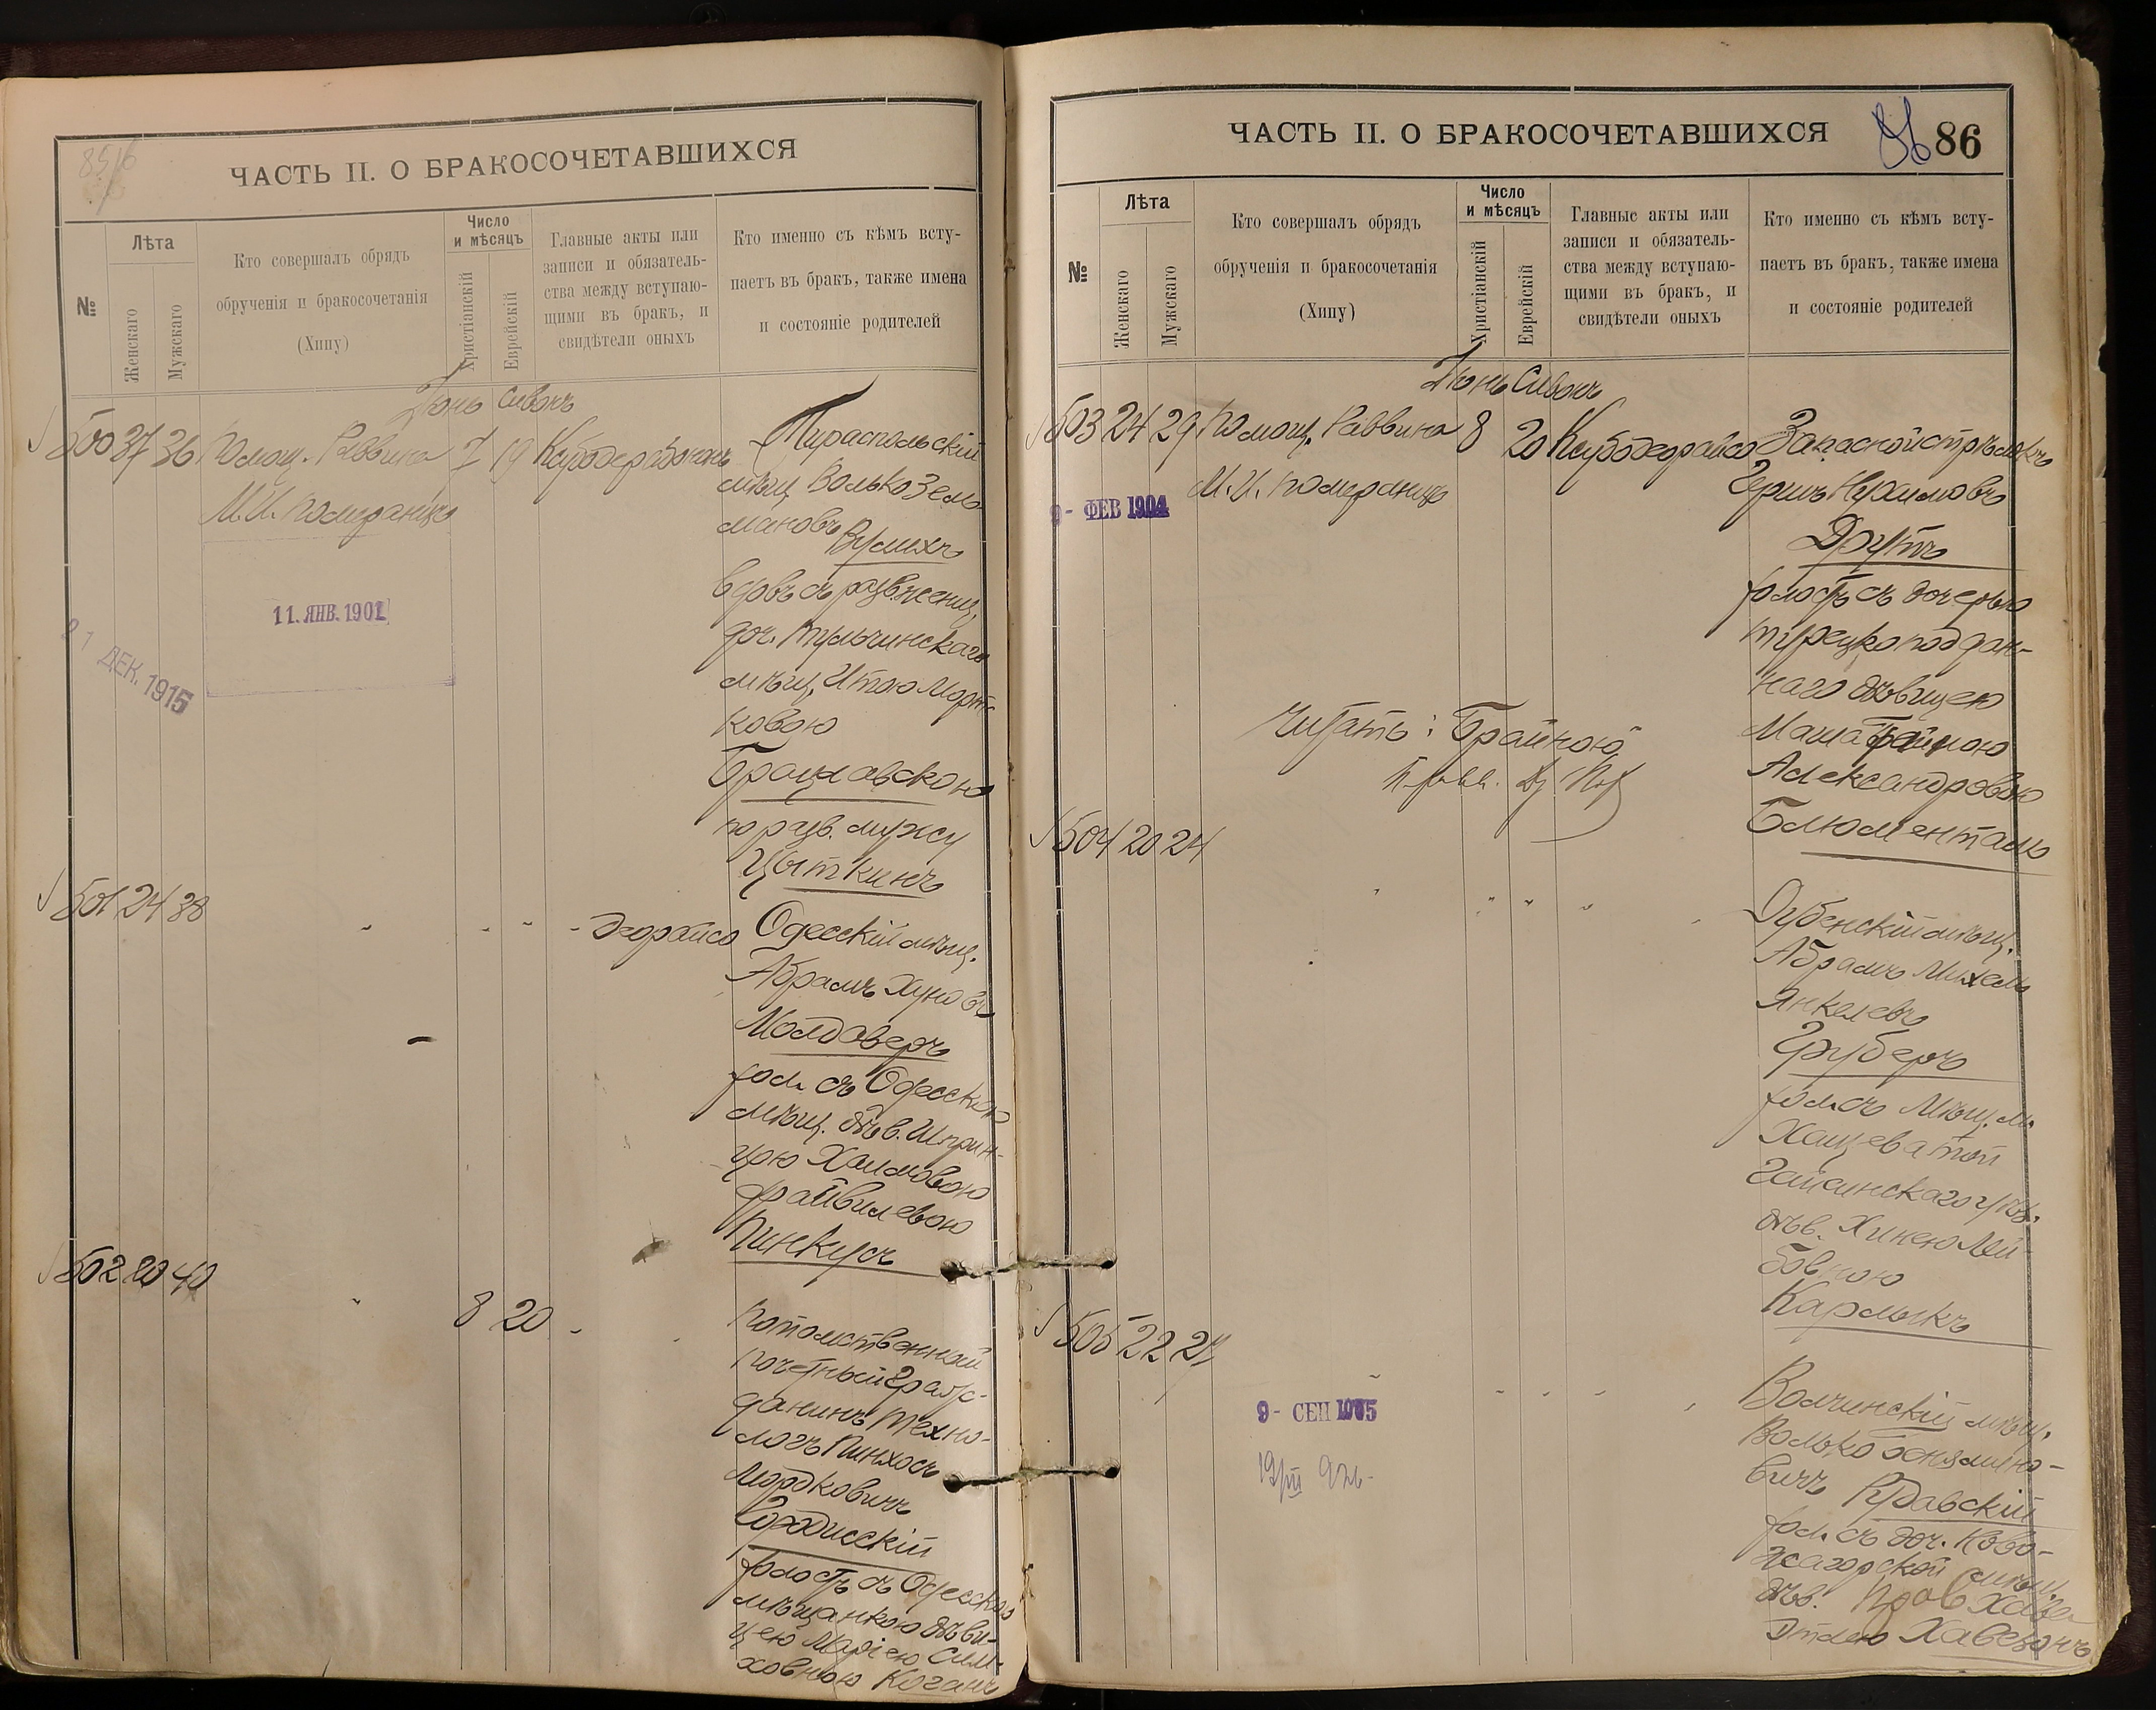 ЧАСТЬ II. О БРАКОСОЧЕТАВШИХСЯ
№
Лѣта
Женскаго
Мужскаго
Кто совершалъ обрядъ
обрученія и бракосочетанія
(Хипу)
Число
и мѣсяцъ
Христіанскій
Еврейскій
Главные акты или
записи и обязатель-
ства между вступаю-
щими въ бракъ, и
свидѣтели оныхъ
Кто именно съ кѣмъ всту-
паетъ въ бракъ, также имена
и состояніе родителей
Іюнь Сивонъ
500 37 36 Помощ. Раввина 7 19
М. И. Померанцъ
11. ЯНВ. 1902
21 ДЕК. 1915
Тираспольскій
мѣщ. Волько Зель
мановъ
Вулихъ
вдовъ съ разв. женщ.
доч. Тульчинскаго
мѣщ. Итою Морт
ковою
Брацлавскою
по разв. мужу
Цыткинъ
501 24 38
" " " " Деорайсо
Одесскій мѣщ.
Абрамъ Хуновъ
Молдаверъ
хол. съ Одесскою
мѣщ. дѣв. Шприн-
цою Хаимовою
Файвилевою
Пинкусъ
502 20 40
" 8 20 " "
Потомственный
почетный граж-
данинъ техно-
логъ Пинхосъ
Мордковичъ
Городисскій
холостъ съ Одесскою
мѣщанкою дѣви-
цею Маріею Сим-
ховною Коганъ
ЧАСТЬ II. О БРАКОСОЧЕТАВШИХСЯ
86 86
№
Лѣта
Женскаго
Мужскаго
Кто совершалъ обрядъ
обрученія и бракосочетанія
(Хипу)
Число
и мѣсяцъ
Христіанскій
Еврейскій
Главные акты или
записи и обязатель-
ства между вступаю-
щими въ бракъ, и
свидѣтели оныхъ
Кто именно съ кѣмъ всту-
паетъ въ бракъ, также имена
и состояніе родителей
Іюнь Сивонъ
503 24 29 Помощ. Раввина 8 20
М. И. Померанцъ
9- ФЕВ 1904
Запасной стрѣлокъ
Гершъ Нухимовъ
Друтъ
холостъ съ дочерью
турецкоподдан-
наго дѣвицею
Маша Брайною
Александровою
Блюменталь
Читать: Брайною
504 20 24
" " " " "
Дубенскій мѣщ.
Абрамъ Михель
Янкелевъ
Груберъ
хол. съ мѣщ. м.
Хащеватой
Гайсинскаго уѣзд.
дѣв. Хинею Лей-
бовною
Карлыкъ
505 22 27
" " " " "
9- СЕН 1905
Волчинскій мѣщ.
Волько Беньямино-
вичъ Рудавскій
хол. съ доч. Ново-
жагорской мѣщ.
дѣв.
Этлею Хавесонъ